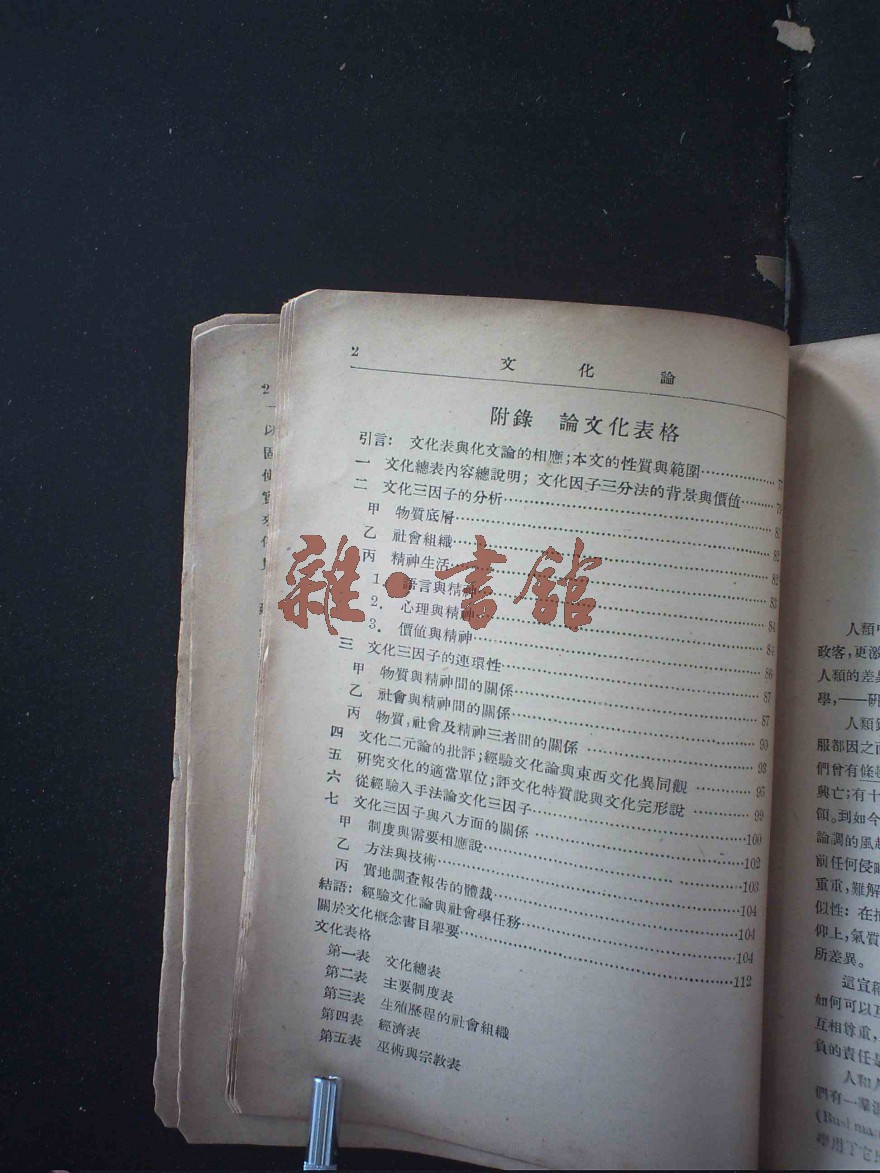 2 文化論
附錄 論文化表格
引言: 文化表與化文論的相應;本文的性質與範圍……77
一 文化總表內容總說明; 文化因子三分法的背景與價值……79
二 文化三因子的分析……81
甲 物質底層……82
乙 社會組織……82
丙 精神生活……83
1. 語言與精神……84
2. 心理與精神……84
3. 價値與精神……86
三 文化三因子的連環性……87
甲 物質與精神間的關係……87
乙 社會與精神間的關係……90
丙 物質,社會及精神三者間的關係……93
四 文化二元論的批評;經驗文化論與東西文化異同觀……95
五 研究文化的適當單位;評文化特質說與文化完形說……99
六 從經驗入手法論文化三因子……100
七 文化三因子與八方面的關係……102
甲 制度與需要相應說……103
乙 方法與技術……104
丙 實地調查報告的體裁……104
結語: 經驗文化論與社會學任務……104
關於文化概念書目舉要……112
文化表格
第一表 文化總表
第二表 主要制度表
第三表 生殖歷程的社會組織
第四表 經濟表
第五表 巫術與宗教表
雜·書館
2
一
以
固
使
人類
政客,更激
人類的差異
學,——研
人類
服都因之而
們曾有條
興亡;有十
領。到如今
論調的風起
前任何侵略
重重,難解
似性: 在
仰上,氣質
所差異。
這宣稱
如何可以互
互相尊重,
負的責任是
人和人
們有一羣